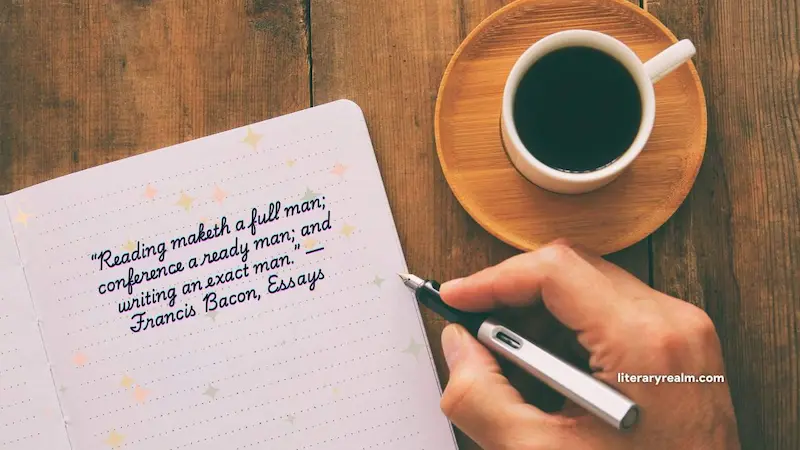 "Reading maketh a full man;
conference a ready man; and
writing an exact man." —
Francis Bacon, Essays
literaryrealm.com